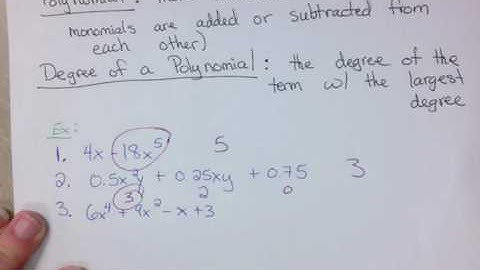 Polynomial:
monomials are added or subtracted from
each other)
Degree of a Polynomial: the degree of the
term w/ the largest
degree
Ex:
1. 4x - 18x⁵ 5
2. 0.5x²y + 0.25xy + 0.75 3
3 2 0
3. 6x⁴ + 9x² - x + 3